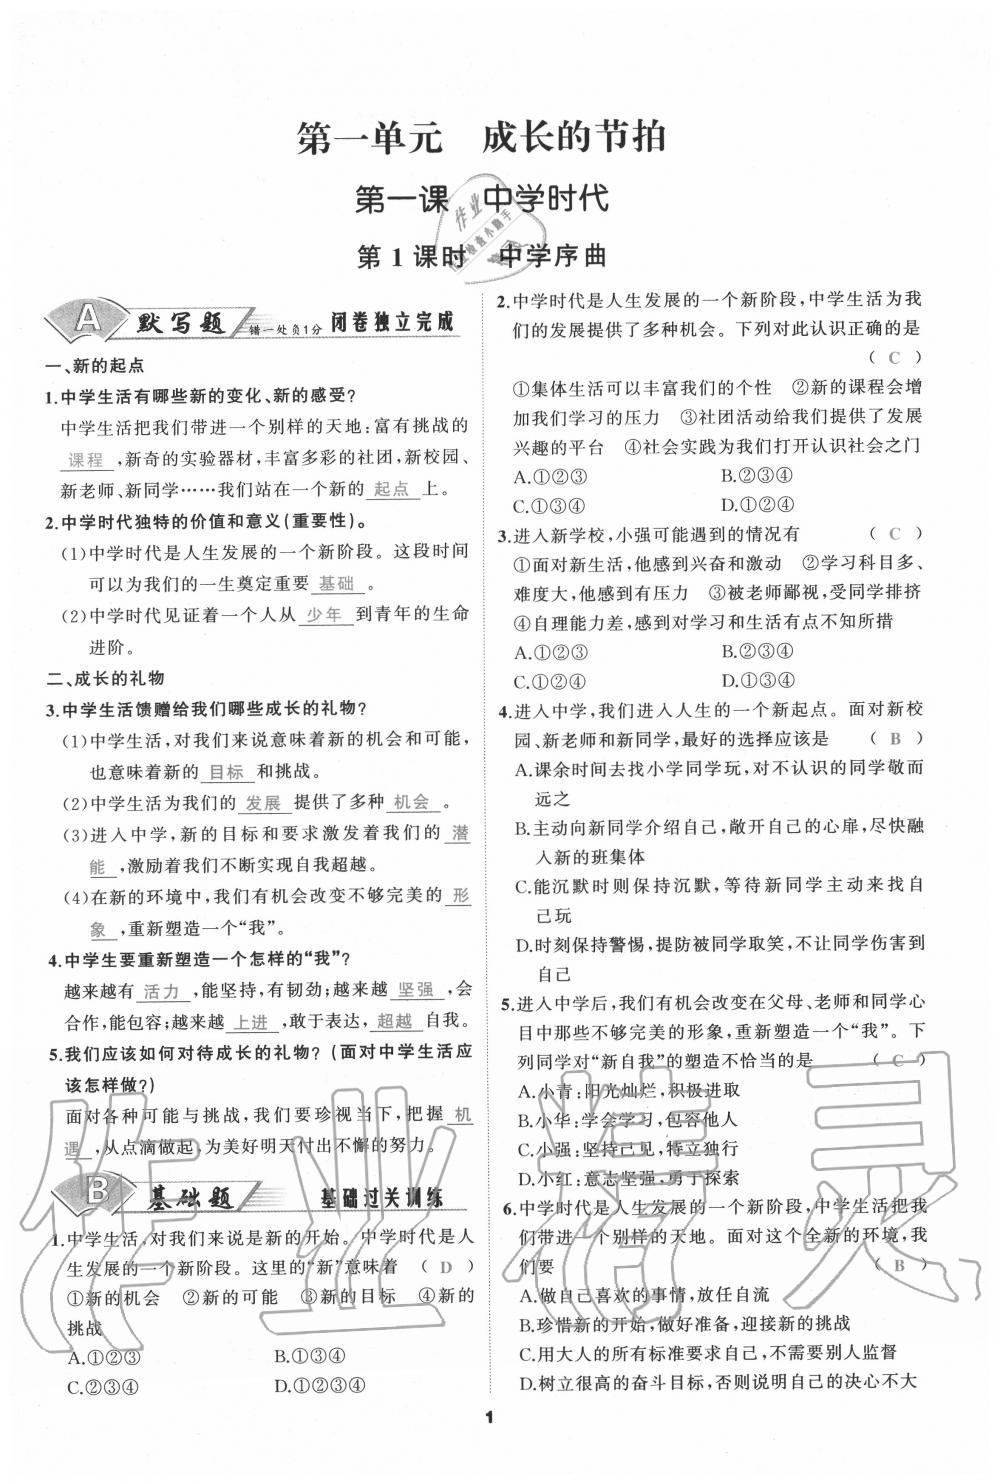 第一单元 成长的节拍
第一课 中学时代
第1课时 中学序曲
A 默写题 错一处负1分 闭卷独立完成
一、新的起点
1.中学生活有哪些新的变化、新的感受?
中学生活把我们带进一个别样的天地:富有挑战的
课程,新奇的实验器材,丰富多彩的社团,新校园、
新老师、新同学……我们站在一个新的 起点 上。
2.中学时代独特的价值和意义(重要性)。
(1)中学时代是人生发展的一个新阶段。这段时间
可以为我们的一生奠定重要 基础 。
(2)中学时代见证着一个人从 少年 到青年的生命
进阶。
二、成长的礼物
3.中学生活馈赠给我们哪些成长的礼物?
(1)中学生活,对我们来说意味着新的机会和可能,
也意味着新的 目标 和挑战。
(2)中学生活为我们的 发展 提供了多种 机会 。
(3)进入中学,新的目标和要求激发着我们的 潜
能 ,激励着我们不断实现自我超越。
(4)在新的环境中,我们有机会改变不够完美的 形
象 ,重新塑造一个“我”。
4.中学生要重新塑造一个怎样的“我”?
越来越有 活力 ,能坚持,有韧劲;越来越 坚强 ,会
合作,能包容;越来越 上进 ,敢于表达, 超越 自我。
5.我们应该如何对待成长的礼物?(面对中学生活应
该怎样做?)
面对各种可能与挑战,我们要珍视当下,把握 机
遇 ,从点滴做起,为美好明天付出不懈的努力。
B 基础题 基础过关训练
1.中学生活,对我们来说是新的开始。中学时代是人
生发展的一个新阶段。这里的“新”意味着 ( D )
①新的机会 ②新的可能 ③新的目标 ④新的
挑战
A.①②③ B.①③④
C.②③④ D.①②③④
2.中学时代是人生发展的一个新阶段,中学生活为我
们的发展提供了多种机会。下列对此认识正确的是
( C )
①集体生活可以丰富我们的个性 ②新的课程会增
加我们学习的压力 ③社团活动给我们提供了发展
兴趣的平台 ④社会实践为我们打开认识社会之门
A.①②③ B.②③④
C.①③④ D.①②③④
3.进入新学校,小强可能遇到的情况有 ( C )
①面对新生活,他感到兴奋和激动 ②学习科目多、
难度大,他感到有压力 ③被老师鄙视,受同学排挤
④自理能力差,感到对学习和生活有点不知所措
A.①②③ B.②③④
C.①②④ D.①②③④
4.进入中学,我们进入人生的一个新起点。面对新校
园、新老师和新同学,最好的选择应该是 ( B )
A.课余时间去找小学同学玩,对不认识的同学敬而
远之
B.主动向新同学介绍自己,敞开自己的心扉,尽快融
入新的班集体
C.能沉默时则保持沉默,等待新同学主动来找自
己玩
D.时刻保持警惕,提防被同学取笑,不让同学伤害到
自己
5.进入中学后,我们有机会改变在父母、老师和同学心
目中那些不够完美的形象,重新塑造一个“我”。下
列同学对“新自我”的塑造不恰当的是 ( C )
A.小青:阳光灿烂,积极进取
B.小华:学会学习,包容他人
C.小强:坚持己见,特立独行
D.小红:意志坚强,勇于探索
6.中学时代是人生发展的一个新阶段,中学生活把我
们带进一个别样的天地。面对这个全新的环境,我
们要 ( B )
A.做自己喜欢的事情,放任自流
B.珍惜新的开始,做好准备,迎接新的挑战
C.用大人的所有标准要求自己,不要别人监督
D.树立很高的奋斗目标,否则说明自己的决心不大
1
作业精灵